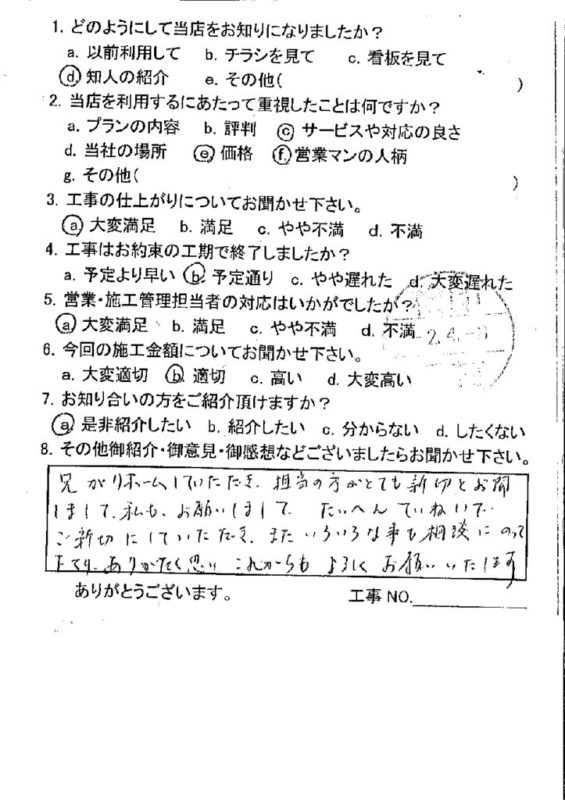 1. どのようにして当店をお知りになりましたか?
a. 以前利用して b. チラシを見て c. 看板を見て
ⓓ 知人の紹介 e. その他( )
2. 当店を利用するにあたって重視したことは何ですか?
a. プランの内容 b. 評判 ⓒ サービスや対応の良さ
d. 当社の場所 ⓔ 価格 ⓕ 営業マンの人柄
g. その他( )
3. 工事の仕上がりについてお聞かせ下さい。
ⓐ 大変満足 b. 満足 c. やや不満 d. 不満
4. 工事はお約束の工期で終了しましたか?
a. 予定より早い ⓑ 予定通り c. やや遅れた d. 大変遅れた
5. 営業・施工管理担当者の対応はいかがでしたか?
ⓐ 大変満足 b. 満足 c. やや不満 d. 不満
6. 今回の施工金額についてお聞かせ下さい。
a. 大変適切 ⓑ 適切 c. 高い d. 大変高い
7. お知り合いの方をご紹介頂けますか?
ⓐ 是非紹介したい b. 紹介したい c. 分からない d. したくない
8. その他御紹介・御意見・御感想などございましたらお聞かせ下さい。
兄がリホームしていただき、担当の方がとても新切とお聞
しまして、私も、お願いしまして たいへんていねいで、
ご新切にしていただき、またいろいろな事も相談にのって
ありがたく思い これからも よろしく お願いいたします
ありがとうございます。 工事 NO.